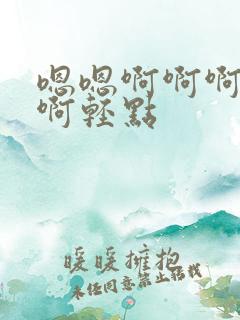 嗯嗯啊啊啊
啊輕點
暖暖擁抱
未经同意禁止转载